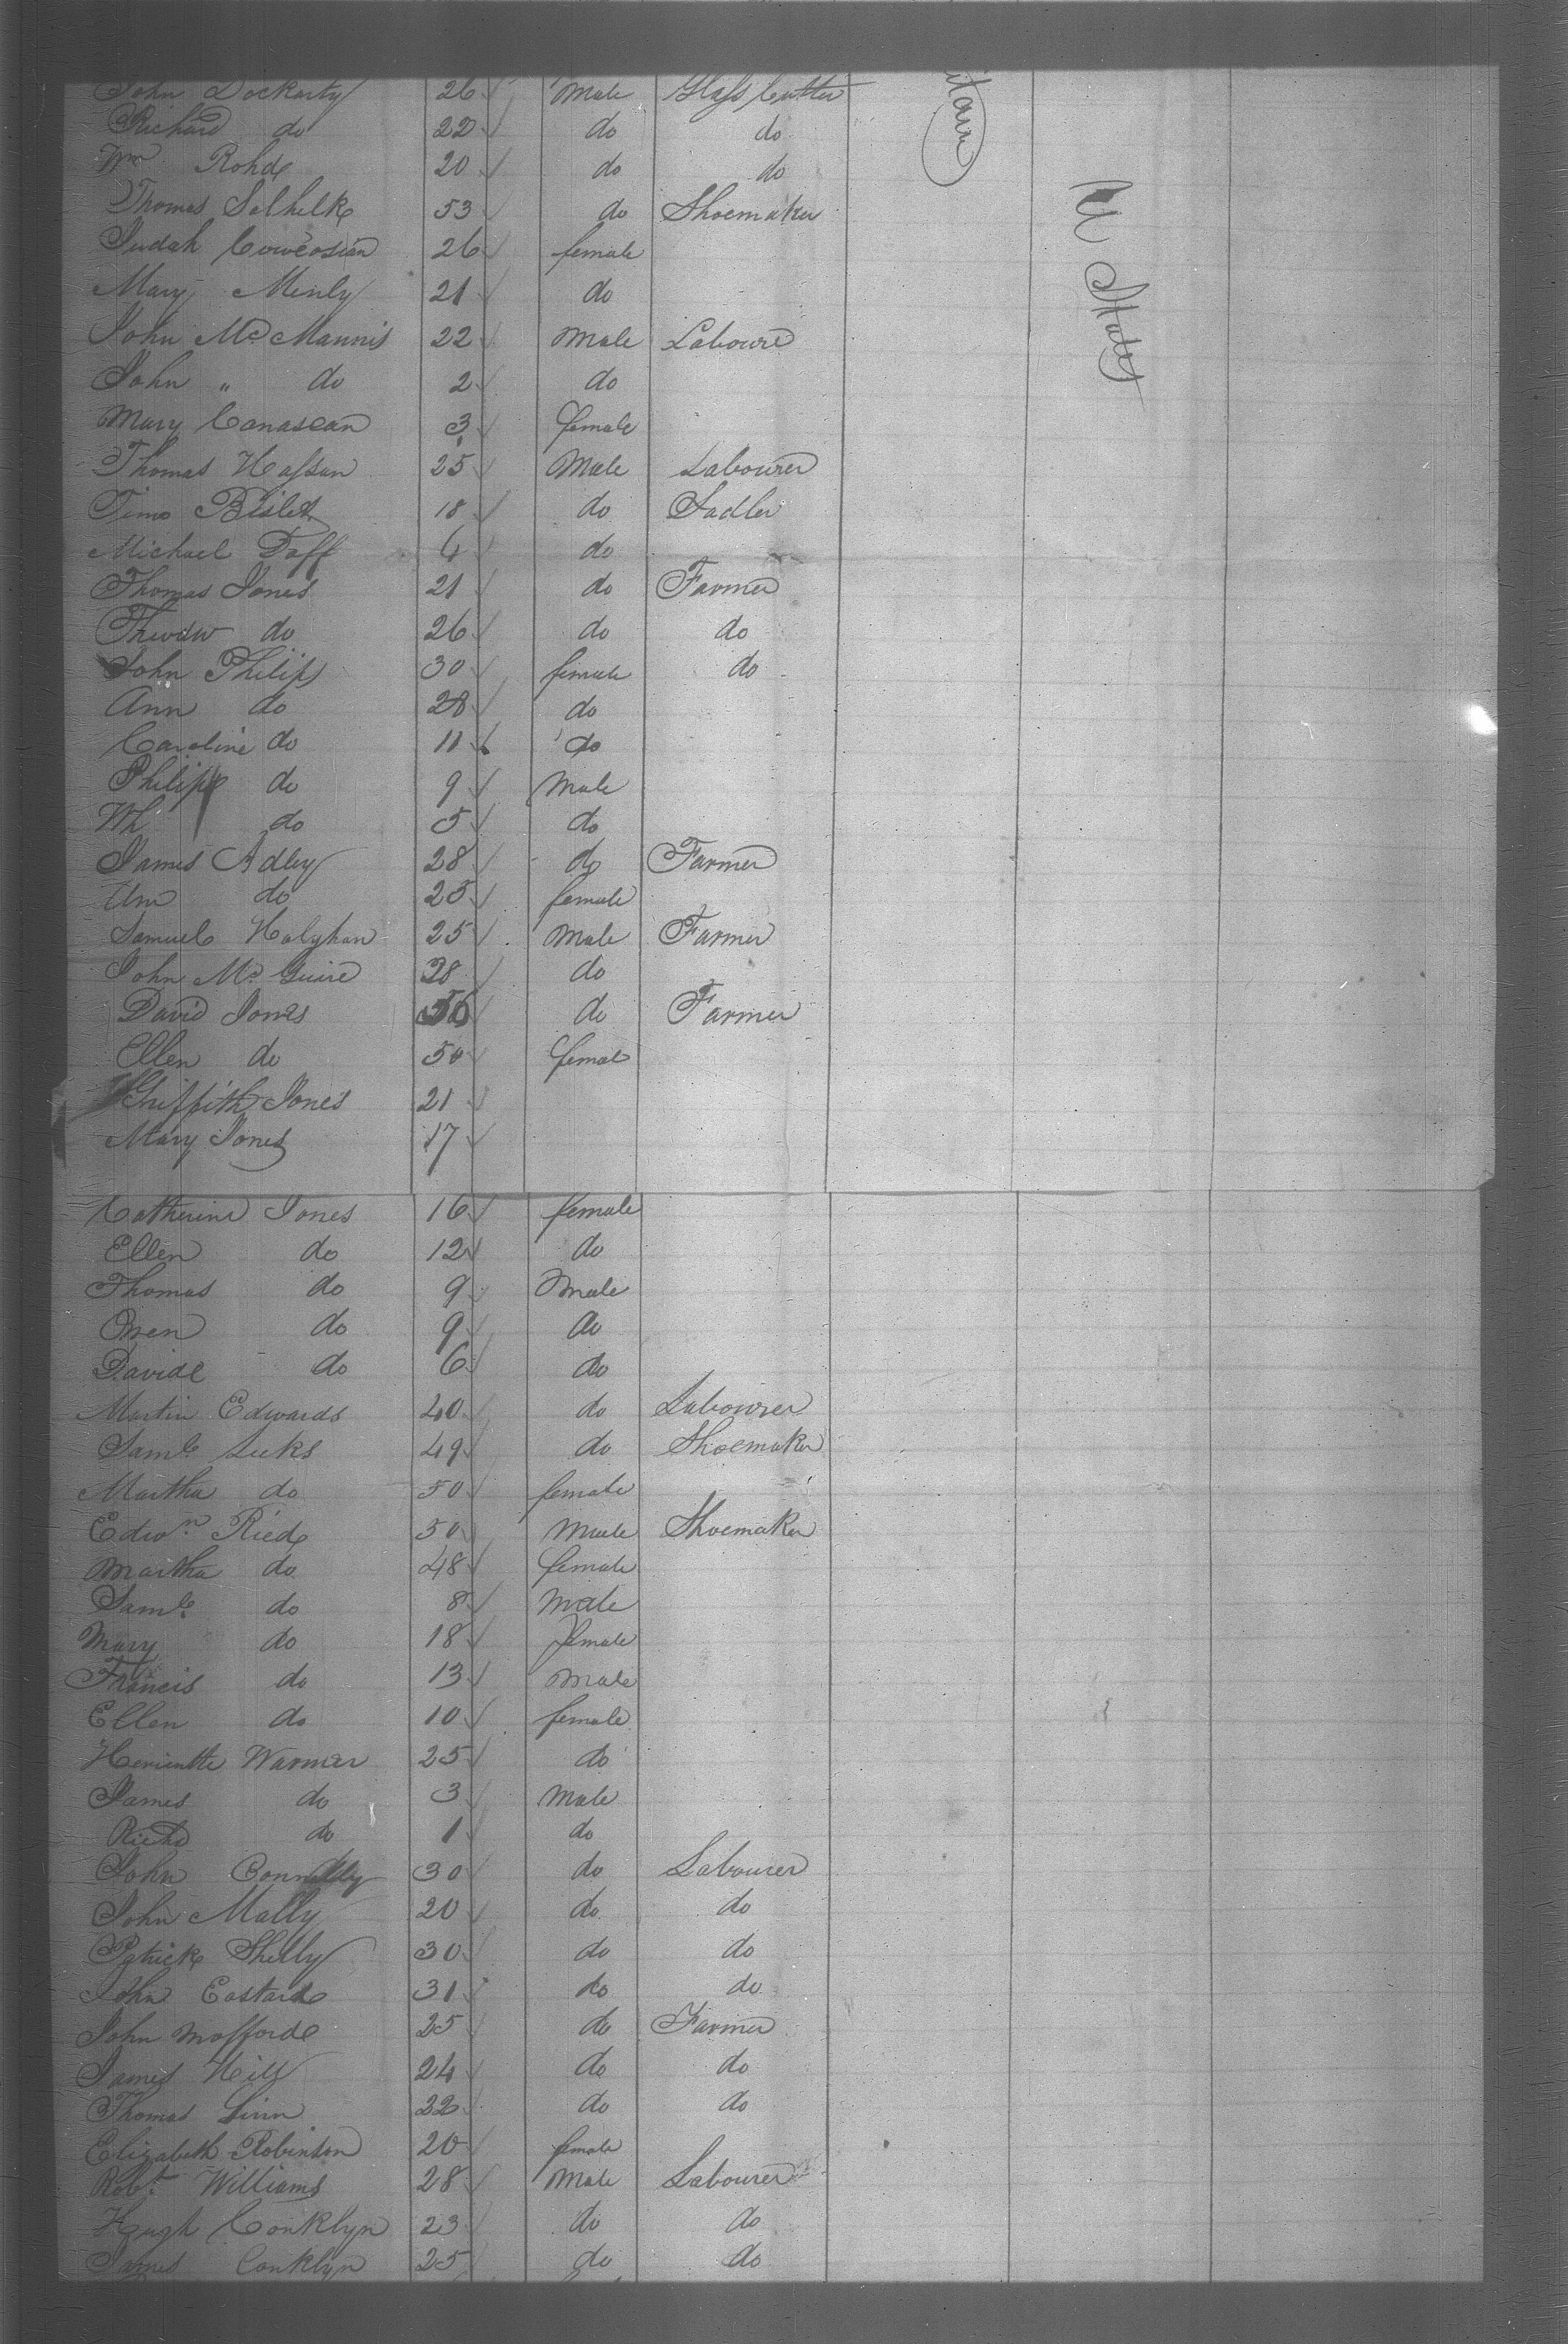 John Dockarty 26 Male Glass Cutter
Richard do 22 do do
Wm Rohde 20 do do
Thomas 53 do Shoemaker
Judah 26 female
Mary Menly 21 do
John McMannis 22 Male Laboure
John " do 2 do
Mary Canasean 3 female
Thomas Hassan 25 Male Labourer
Timo 18 do Sadler
Michael Doff 4 do
Thomas Jones 21 do Farmer
do 26 do do
John Philip 30 female do
Ann do 28 do
Caroline do 11 do
Philip do 9 Male
Wm do 5 do
James Adley 28 do Farmer
Ann do 25 female
Samuel Halyhan 25 Male Farmer
John McGuire 28 do
David Jones 56 do Farmer
Ellen do 50 femal
Griffith Jones 21
Mary Jones 17
Catherine Jones 16 female
Ellen do 12 do
Thomas do 9 Male
Owen do 9 do
David do 6 do
Martin Edwards 40 do Labourer
Saml Leeks 49 do Shoemaker
Martha do 50 female
Edwn Ried 50 Male Shoemaker
Martha do 48 female
Saml do 8 Male
Mary do 18 female
Francis do 13 Male
Ellen do 10 female
Henrientte Warmer 25 do
James do 3 Male
Richd do 1 do
John Connolly 30 do Labourer
John Mally 20 do do
Patrick Shelly 30 do do
John Eastard 31 do do
John Mofford 25 do Farmer
James Hill 24 do do
Thomas Linn 22 do do
Elizabeth Robinson 20 female
Robt Williams 28 Male Labourer
Hough Conklyn 23 do do
James Conklyn 25 do do
itain
U States